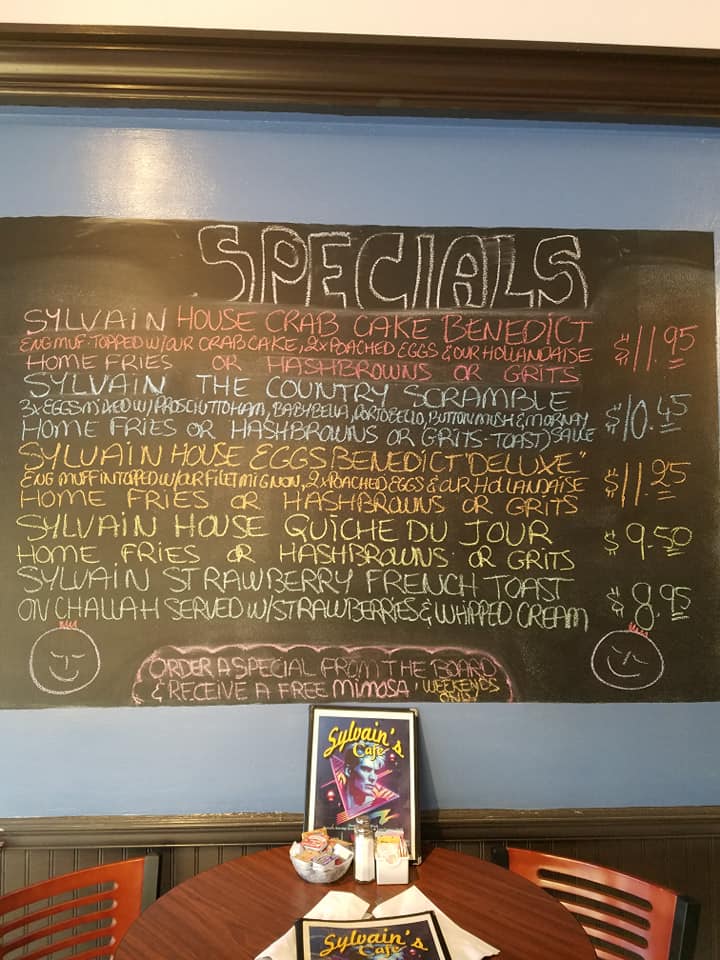 SPECIALS
SYLVAIN HOUSE CRAB CAKE BENEDICT
ENG MUF. TOPPED W/OUR CRAB CAKE, 2X POACHED EGGS & OUR HOLLANDAISE $11.95
HOME FRIES OR HASHBROWNS OR GRITS
SYLVAIN THE COUNTRY SCRAMBLE
3X EGGS MIXED W/PROSCIUTTO HAM, BABYBELLA, PORTOBELLO, BUTTON MUSH & MORNAY $10.45
HOME FRIES OR HASHBROWNS OR GRITS-TOAST) SAUCE
SYLVAIN HOUSE EGGS BENEDICT "DELUXE"
ENG MUFFIN TOPPED W/OUR FILET MIGNON, 2X POACHED EGGS & OUR HOLLANDAISE $11.25
HOME FRIES OR HASHBROWNS OR GRITS
SYLVAIN HOUSE QUICHE DU JOUR $9.50
HOME FRIES OR HASHBROWNS OR GRITS
SYLVAIN STRAWBERRY FRENCH TOAST $8.95
ON CHALLAH SERVED W/STRAWBERRIES & WHIPPED CREAM
ORDER A SPECIAL FROM THE BOARD
& RECEIVE A FREE MIMOSA, WEEKENDS
ONLY
Sylvain's
Cafe
Sylvain's
Cafe